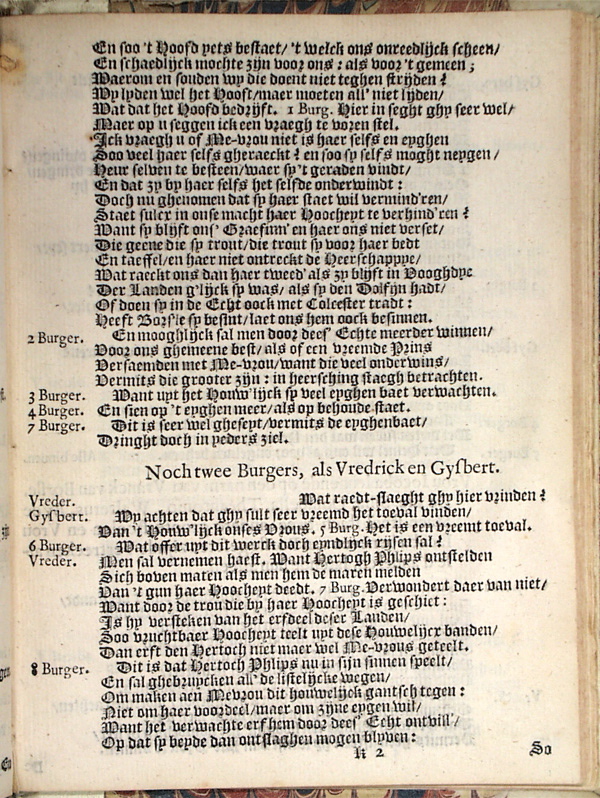 En soo 't Hoofd yets bestaet/ 't welck ons onreedlijck scheen/
En schaedlijck mochte zijn voor ons : als voor 't gemeen ;
Waerom en souden wy die doent niet teghen strijden ?
Wy lyden wel het Hooft/maer moeten all' niet lyden/
Wat dat het Hoofd bedrijft. 1 Burg. Hier in seght ghy seer wel/
Maer op u seggen ick een vraegh te voren stel.
Ick vraegh u of Me-vrou niet is haer selfs en eyghen
Soo veel haer selfs gheraeckt ? en soo sy selfs moght neygen/
Heur selven te besteen/waer sy 't geraden vindt/
En dat zy by haer selfs het selfde onderwindt :
Doch nu ghenomen dat sy haer staet wil vermind'ren/
Staet sulcx in onse macht haer Hoocheyt te verhind'ren ?
Want sy blijft ons' Graefinn' en haer ons niet verset/
Die geene die sy trout/die trout sy voor haer bedt
En taeffel/en haer niet ontreckt de Heerschappye/
Wat raeckt ons dan haer tweed' als zy blijft in Vooghdye
Der Landen g'lijck sy was/ als sy den Dolfijn hadt/
Of doen sy in de Echt oock met Colcester tradt :
Heeft Borsle sy besint/laet ons hem oock besinnen.
2 Burger. En mooghlijck sal men door dees' Echte meerder winnen/
Voor ons ghemeene best/als of een vreemde Prins
Versaemden met Me-vrou/want die veel onderwins/
Vermits die grooter zijn : in heersching staegh betrachten.
3 Burger. Want uyt het Houw'lijck sy veel eyghen baet verwachten.
4 Burger. En sien op 't eyghen meer/als op behoude staet.
7 Burger. Dit is seer wel gheseyt/vermits de eyghenbaet/
Dringht doch in yeders ziel.
Noch twee Burgers, als Vredrick en Gysbert.
Vreder. Wat raedt-slaeght ghy hier vrinden ?
Gysbert. Wy achten dat ghy sult seer vreemd het toeval vinden/
Van 't Houw'lijck onses Vrous. 5 Burg. Het is een vreemt toeval.
6 Burger. Wat offer uyt dit werck doch eyndlijck rijsen sal ?
Vreder. Men sal vernemen haest. Want Hertogh Phlips ontstelden
Sich boven maten als men hem de maren melden
Van 't gun haer Hoocheyt deedt. 7 Burg. Verwondert daer van niet/
Want door de trou die by haer Hoocheyt is geschiet :
Is hy versteken van het erfdeel deser Landen/
Soo vruchtbaer Hoocheyt teelt uyt dese Houwelijcx banden/
Dan erft den Hertoch niet maer wel Me-vrous geteelt.
8 Burger. Dit is dat Hertoch Phlips nu in sijn sinnen speelt/
En sal ghebruycken all' de listelijcke wegen/
Om maken aen Mevrou dit houwelijck gantsch tegen :
Niet om haer voordeel/maer om zijne eygen wil/
Want het verwachte erf hem door dees' Echt ontvill'/
Op dat sy beyde dan ontslaghen mogen blyven :
K 2
So